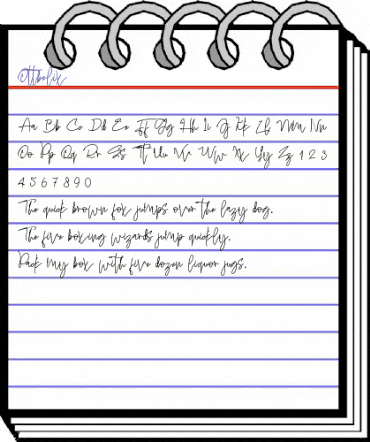 Ottbelix
Aa Bb Cc Dd Ee Ff Gg Hh Ii Jj Kk Ll Mm Nn
Oo Pp Qq Rr Ss Tt Uu Vv Ww Xx Yy Zz 1 2 3
4 5 6 7 8 9 0
The quick brown fox jumps over the lazy dog.
The five boxing wizards jump quickly.
Pack my box with five dozen liquor jugs.